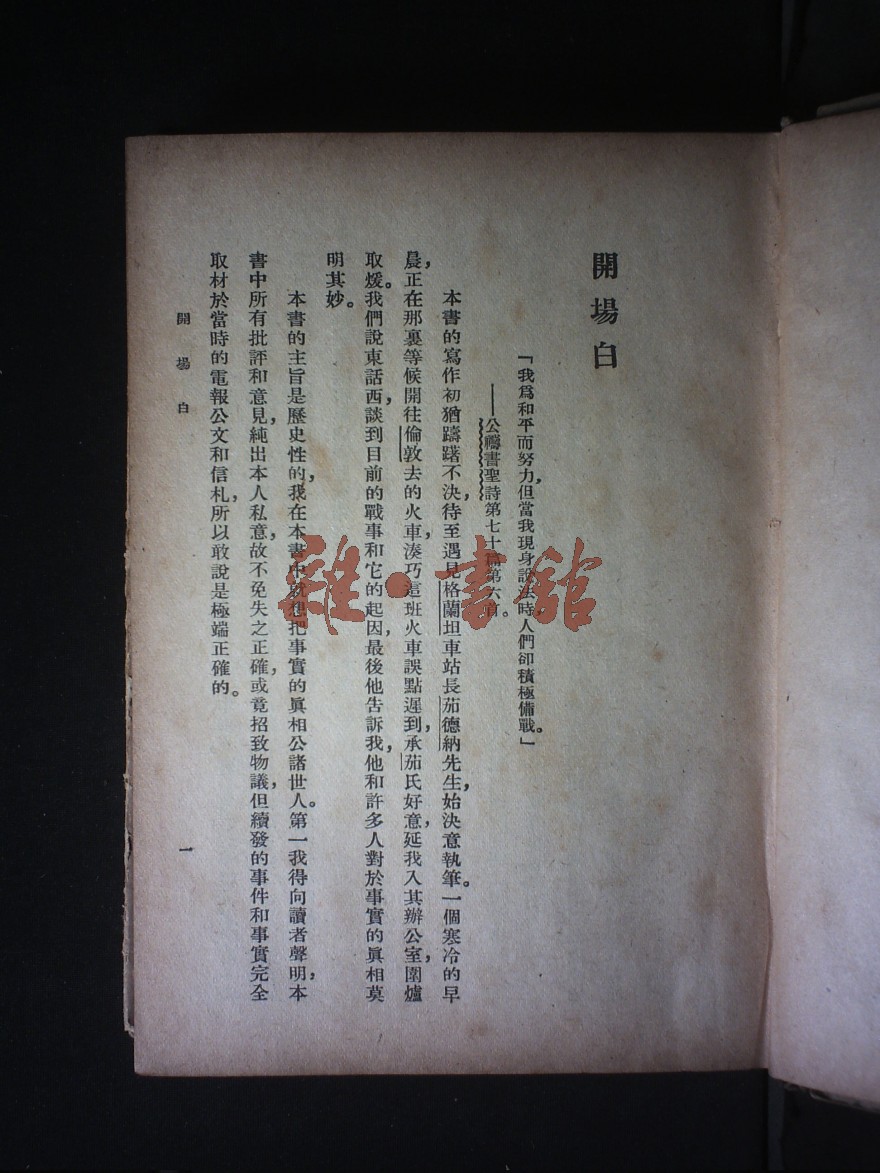 開場白
「我爲和平而努力,但當我現身說法時,人們卻積極備戰。」
——公禱書聖詩第七十篇第六首。
本書的寫作初猶躊躇不決,待至遇見格蘭坦車站長茄德納先生,始決意執筆。一個寒冷的早
晨,正在那裏等候開往倫敦去的火車,湊巧這班火車誤點遲到,承茄氏好意,延我入其辦公室,圍爐
取煖。我們說東話西,談到目前的戰事和它的起因,最後他告訴我,他和許多人對於事實的眞相莫
明其妙。
本書的主旨是歷史性的,我在本書中就想把事實的眞相公諸世人。第一我得向讀者聲明,本
書中所有批評和意見,純出本人私意,故不免失之正確,或竟招致物議,但續發的事件和事實完全
取材於當時的電報公文和信札,所以敢說是極端正確的。
開場白
一
雜·書館